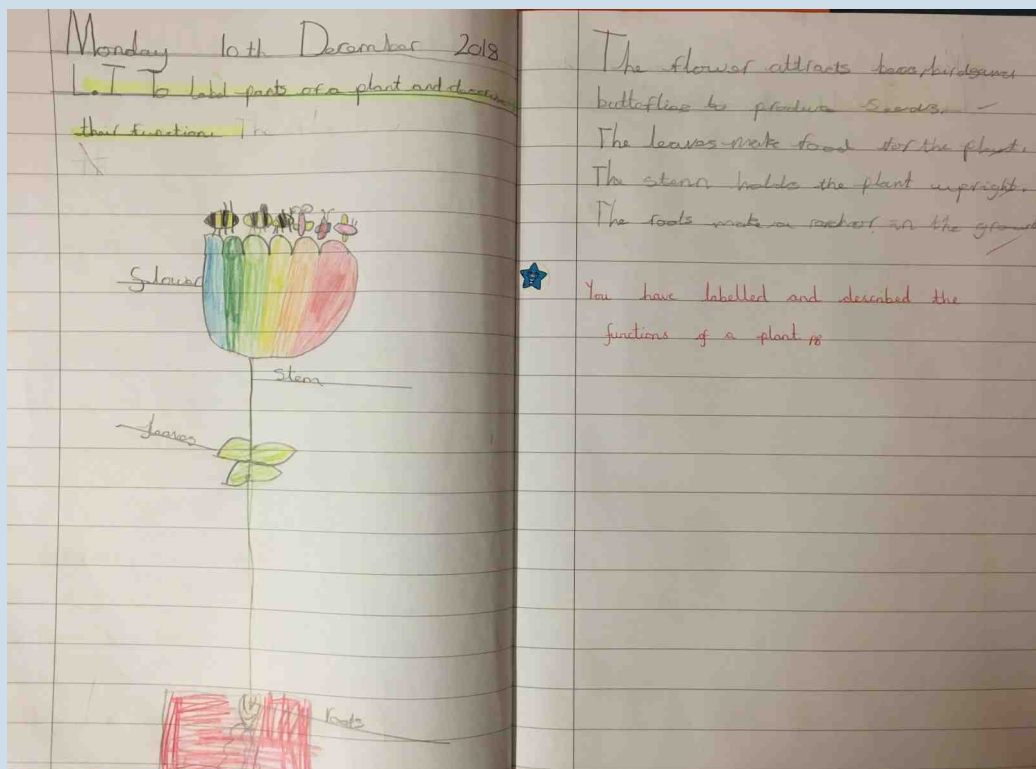 Monday 10th December 2018
L.I To label parts of a plant and
their function. The
flower
stem
leaves
roots
The flower attracts
to produce seeds.
The leaves make food for the plant.
The stem holds the plant upright.
The roots in the
You have labelled and described the
functions of a plant